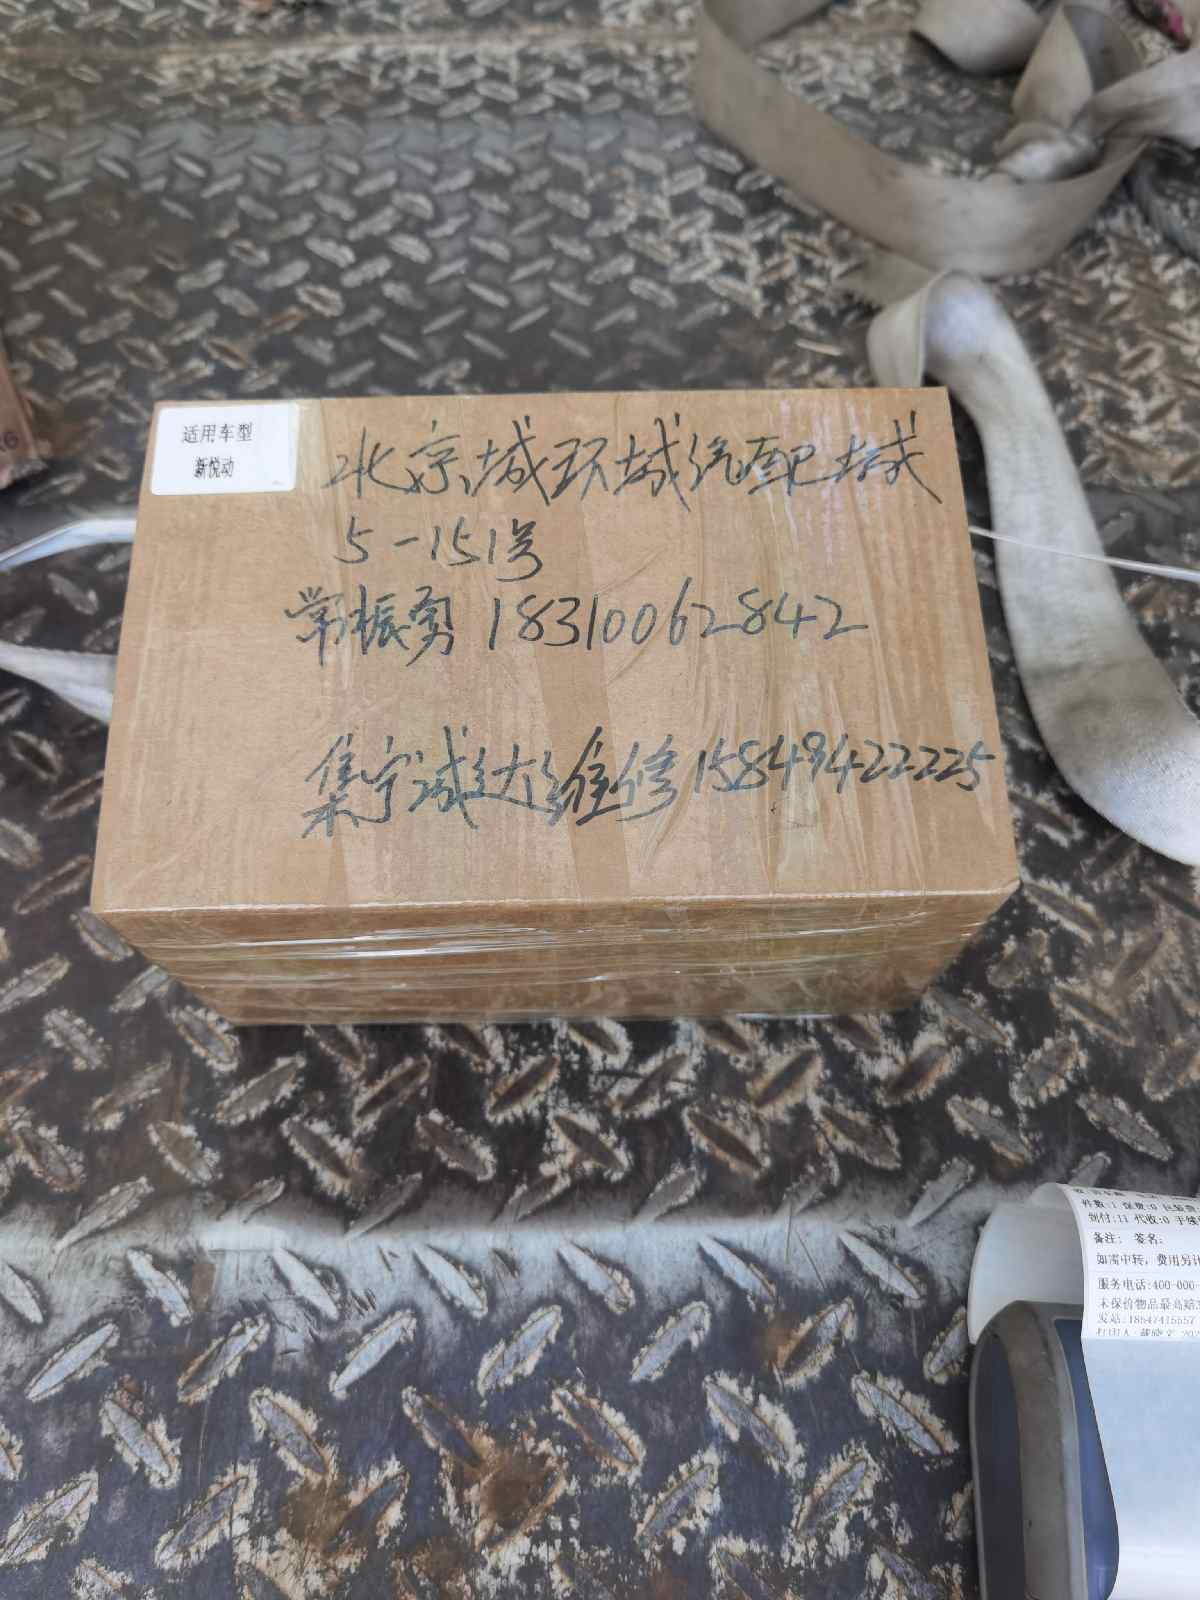 适用车型
新悦动
北京城环城汽配城
5-151号
常振勇 18310062842
集宁诚达维修 15849422225
件数:1 保费:0 包装费
到付:11 代收:0 手续
备注: 签名:
如需中转，费用另计
服务电话:400-000-
未保价物品最高赔
发站:18547415557
打印人:
26